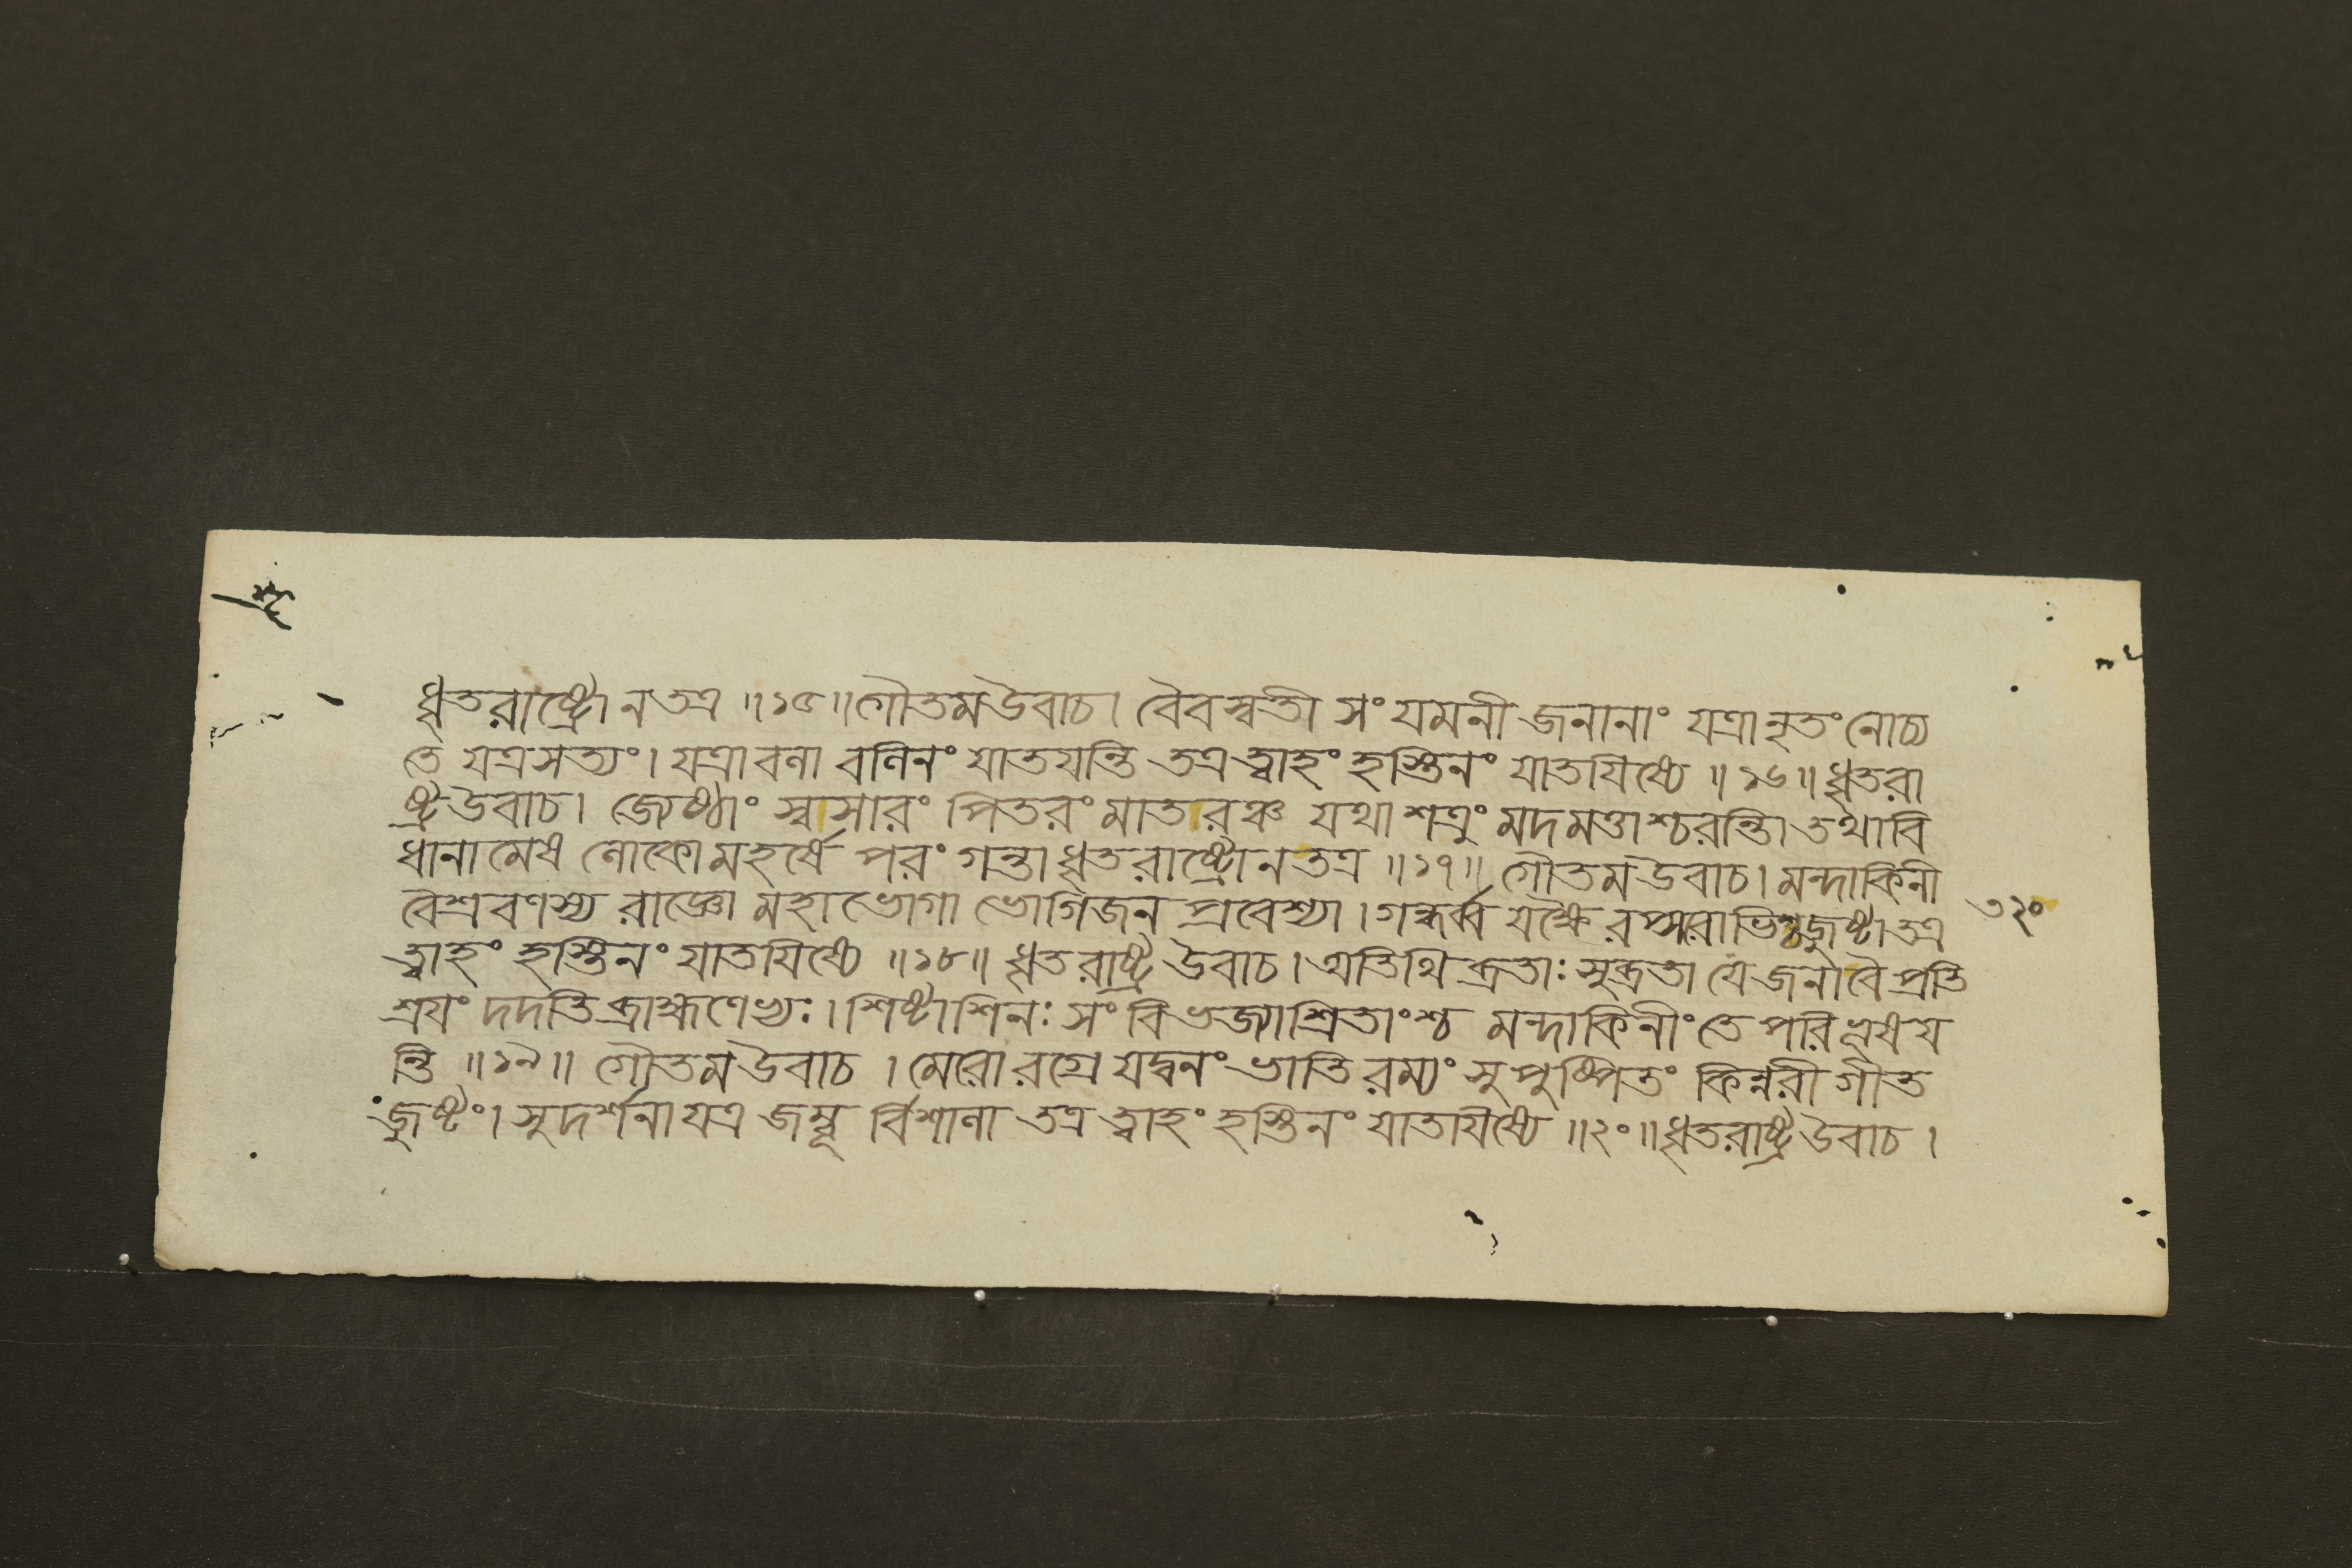 ধৃতরাষ্ট্রো ন তত্র ॥১৫॥ গৌতম উবাচ। বৈবস্বতী সংযমনী জনানাং যত্রানৃতং নোচ্য
তে যত্র সত্যং। যত্রাবলা বলিনং যাতয়ন্তি তত্র ত্বাহং হস্তিনং যাতয়িষ্যে ॥১৬॥ ধৃতরা
ষ্ট্র উবাচ। জ্যেষ্ঠাং স্বসারং পিতরং মাতারঞ্চ যথা শত্রুং মদমত্তাশ্চরন্তি। তথাবি
ধানামেষ লোকো মহর্ষে পরং গন্তা ধৃতরাষ্ট্রো ন তত্র ॥১৭॥ গৌতম উবাচ। মন্দাকিনী
বৈশ্রবণস্য রাজ্ঞো মহাভোগা ভোগিজন প্রবেশ্যা। গন্ধর্ব্ব যক্ষৈরপ্সরাভিশ্চ জুষ্টা তত্র
ত্বাহং হস্তিনং যাতয়িষ্যে ॥১৮॥ ধৃতরাষ্ট্র উবাচ। অতিথিব্রতাঃ সুব্রতা যে জনা বৈ প্রতি
শ্রয়ং দদতি ব্রাহ্মণেভ্যঃ। শিষ্টাশিনঃ সংবিভজ্যাশ্রিতাংশ্চ মন্দাকিনীং তে পরিভূষয়
ন্তি ॥১৯॥ গৌতম উবাচ। মেরোরগ্রে যদ্বনং ভাতি রম্যং সুপুষ্পিতং কিন্নরী গীত
জুষ্টং। সুদর্শনা যত্র জম্বূর্বিশালা তত্র ত্বাহং হস্তিনং যাতয়িষ্যে ॥২০॥ ধৃতরাষ্ট্র উবাচ।
৩২০